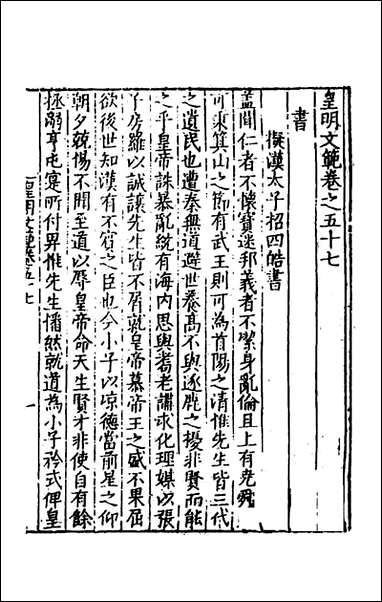 皇明文範卷之五十七
書
擬漢太子招四皓書
蓋聞仁者不懷寶迷邦義者不潔身亂倫且上有堯舜
可乘箕山之節有武王則可為首陽之清惟先生皆三代
之遺民也遭秦無道避世養髙不與逐鹿之擾非賢而能
之乎皇帝誅暴亂統有海内思與耆老講求化理媒以張
子房雖以誠讓先生皆不屑就皇帝慕帝王之盛不果屈
欲後世知漢有不賓之臣也今小子以凉德當前星之仰
朝夕兢惕不聞至道以辱皇帝命天生賢才非使自有餘
拯溺亨屯寔所付畀惟先生幡然就道為小子矜式俾皇
皇明文範卷五十七
一